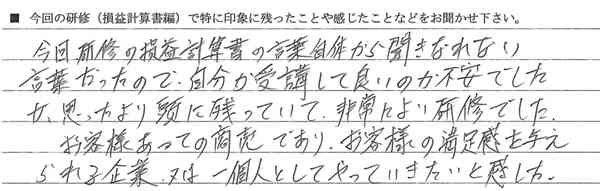 ■ 今回の研修（損益計算書編）で特に印象に残ったことや感じたことなどをお聞かせ下さい。
今回研修の損益計算書の言葉自体から聞きなれない
言葉だったので、自分が受講して良いのか不安でした
が、思ったより頭に残っていて、非常によい研修でした。
お客様あっての商売であり、お客様の満足感を与え
られる企業、又は一個人としてやっていきたいと感じた。